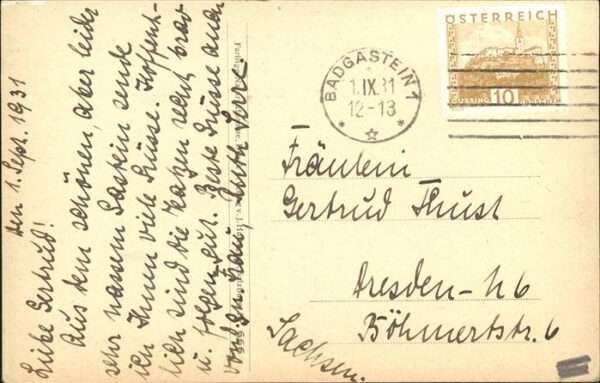 Den 1. Sept. 1931
Liebe Gertrud!
Aus dem schönen, aber leider
sehr nassem Gastein sende
ich Ihnen viele Grüsse. Hoffent-
lich sind die Katzen recht brav
u. folgen gut. Beste Grüsse auch
von
Frau
ÖSTERREICH
10
BADGASTEIN 1
1.IX.31
12-13
Fräulein
Gertrud Thust
Dresden-N 6
Böhmertstr. 6
Sachsen.